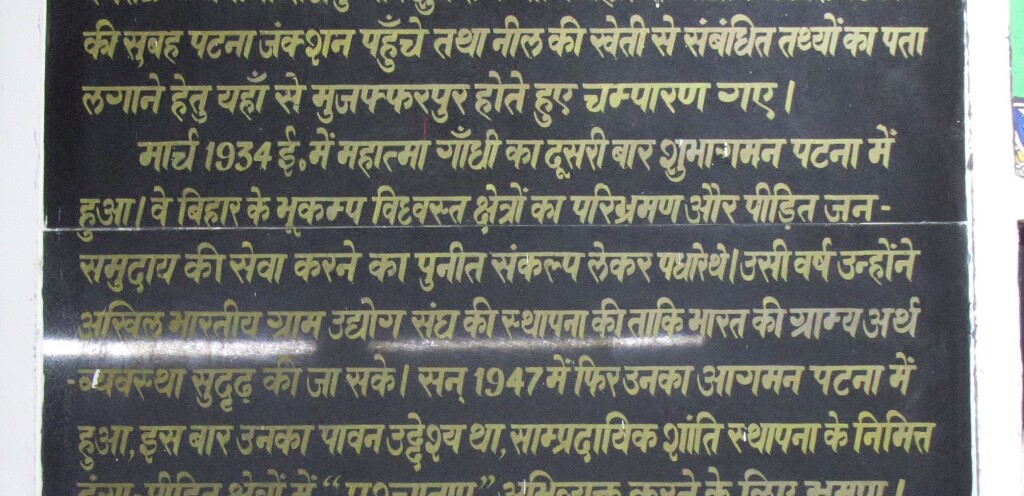 की सुबह पटना जंक्शन पहुँचे तथा नील की खेती से संबंधित तथ्यों का पता
लगाने हेतु यहाँ से मुजफ्फरपुर होते हुए चम्पारण गए।
मार्च 1934 ई. में महात्मा गाँधी का दूसरी बार शुभागमन पटना में
हुआ। वे बिहार के भूकम्प विध्वस्त क्षेत्रों का परिभ्रमण और पीड़ित जन-
समुदाय की सेवा करने का पुनीत संकल्प लेकर पधारे थे। उसी वर्ष उन्होंने
अखिल भारतीय ग्राम उद्योग संघ की स्थापना की ताकि भारत की ग्राम्य अर्थ
-व्यवस्था सुदृढ़ की जा सके। सन् 1947 में फिर उनका आगमन पटना में
हुआ, इस बार उनका पावन उद्देश्य था, साम्प्रदायिक शांति स्थापना के निमित्त
दंगा-पीड़ित क्षेत्रों में “पश्चाताप” अभिव्यक्त करने के लिए भ्रमण।